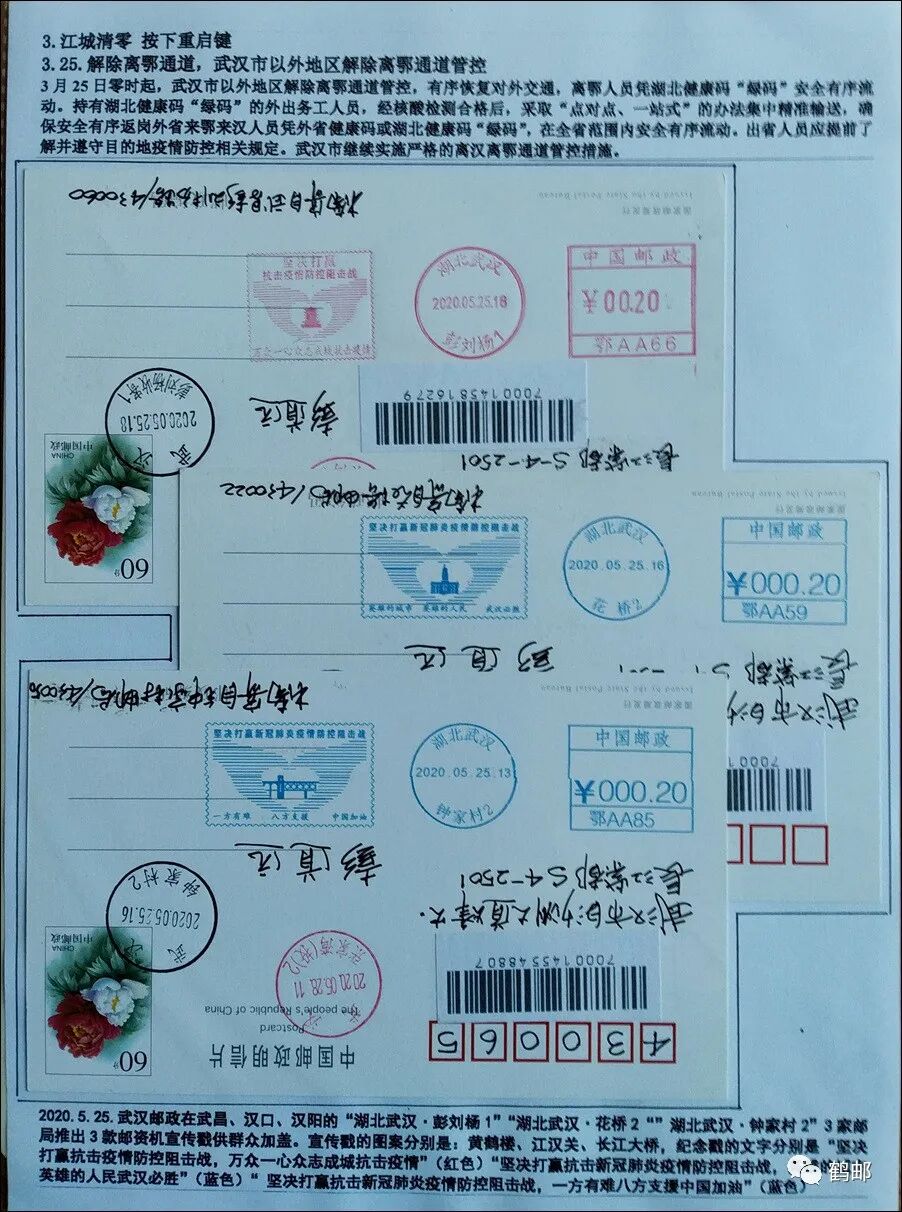 3. 江城清零 按下重启键
3.25. 解除离鄂通道，武汉市以外地区解除离鄂通道管控
3月25日零时起，武汉市以外地区解除离鄂通道管控，有序恢复对外交通，离鄂人员凭湖北健康码“绿码”安全有序流
动。持有湖北健康码“绿码”的外出务工人员，经核酸检测合格后，采取“点对点、一站式”的办法集中精准输送，确
保安全有序返岗外省来鄂来汉人员凭外省健康码或湖北健康码“绿码”，在全省范围内安全有序流动。出省人员应提前了
解并遵守目的地疫情防控相关规定。武汉市继续实施严格的离汉离鄂通道管控措施。
Issued by the State Postal Bureau
国家邮政局发行
430060
坚决打赢
抗击疫情防控阻击战
万众一心众志成城抗击疫情
湖北武汉
2020.05.25.16
彭刘杨1
中国邮政
￥00.20
鄂AA66
7000145816279
彭道元
长江紫都 S-4-2501
2020.05.25.18
中国邮政
CHINA
60分
430022
Issued by the State Postal Bureau
国家邮政局发行
坚决打赢新冠肺炎疫情防控阻击战
英雄的城市 英雄的人民 武汉必胜
湖北武汉
2020.05.25.16
花桥2
中国邮政
￥000.20
鄂AA59
彭道元
武汉市白沙
70001
Issued by the State Postal Bureau
国家邮政局发行
坚决打赢新冠肺炎疫情防控阻击战
一方有难 八方支援 中国加油
湖北武汉
2020.05.25.13
钟家村2
中国邮政
￥000.20
鄂AA85
彭道元
长江紫都 S4-2501
武汉市白沙洲大道烽火
武汉
2020.05.25.16
钟家村2
中国邮政
CHINA
60分
7000145548807
430065
The people's Republic of China
Postcard
中国邮政明信片
2020.5.25. 武汉邮政在武昌、汉口、汉阳的“湖北武汉·彭刘杨1”“湖北武汉·花桥2“”湖北武汉·钟家村2”3家邮
局推出3款邮资机宣传戳供群众加盖。宣传戳的图案分别是：黄鹤楼、江汉关、长江大桥，纪念戳的文字分别是“坚决
打赢抗击疫情防控阻击战，万众一心众志成城抗击疫情”（红色）“坚决打赢抗击新冠肺炎疫情防控阻击战，
英雄的人民武汉必胜”（蓝色）“坚决打赢抗击新冠肺炎疫情防控阻击战，一方有难八方支援中国加油”（蓝色）
鹤邮